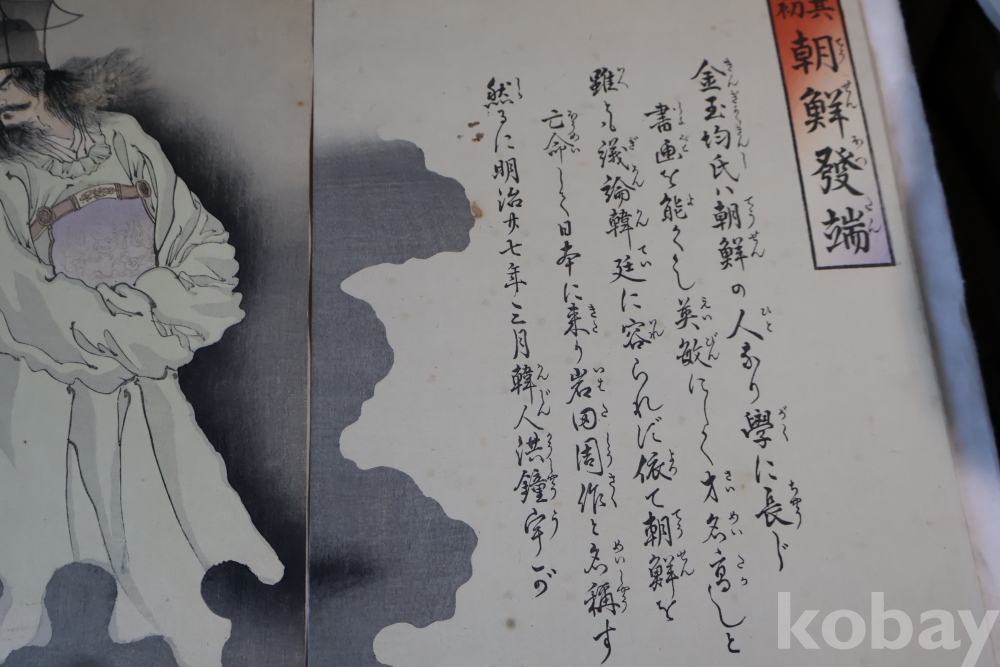 其初
朝鮮發端
てうせんほつたん
金玉均氏ハ朝鮮の人なり學に長じ
書画を能くし英敏にして才名高しと
雖も議論韓廷に容られず依て朝鮮を
亡命して日本に来り岩田周作と名稱す
然るに明治廿七年三月韓人洪鐘宇が
kobay